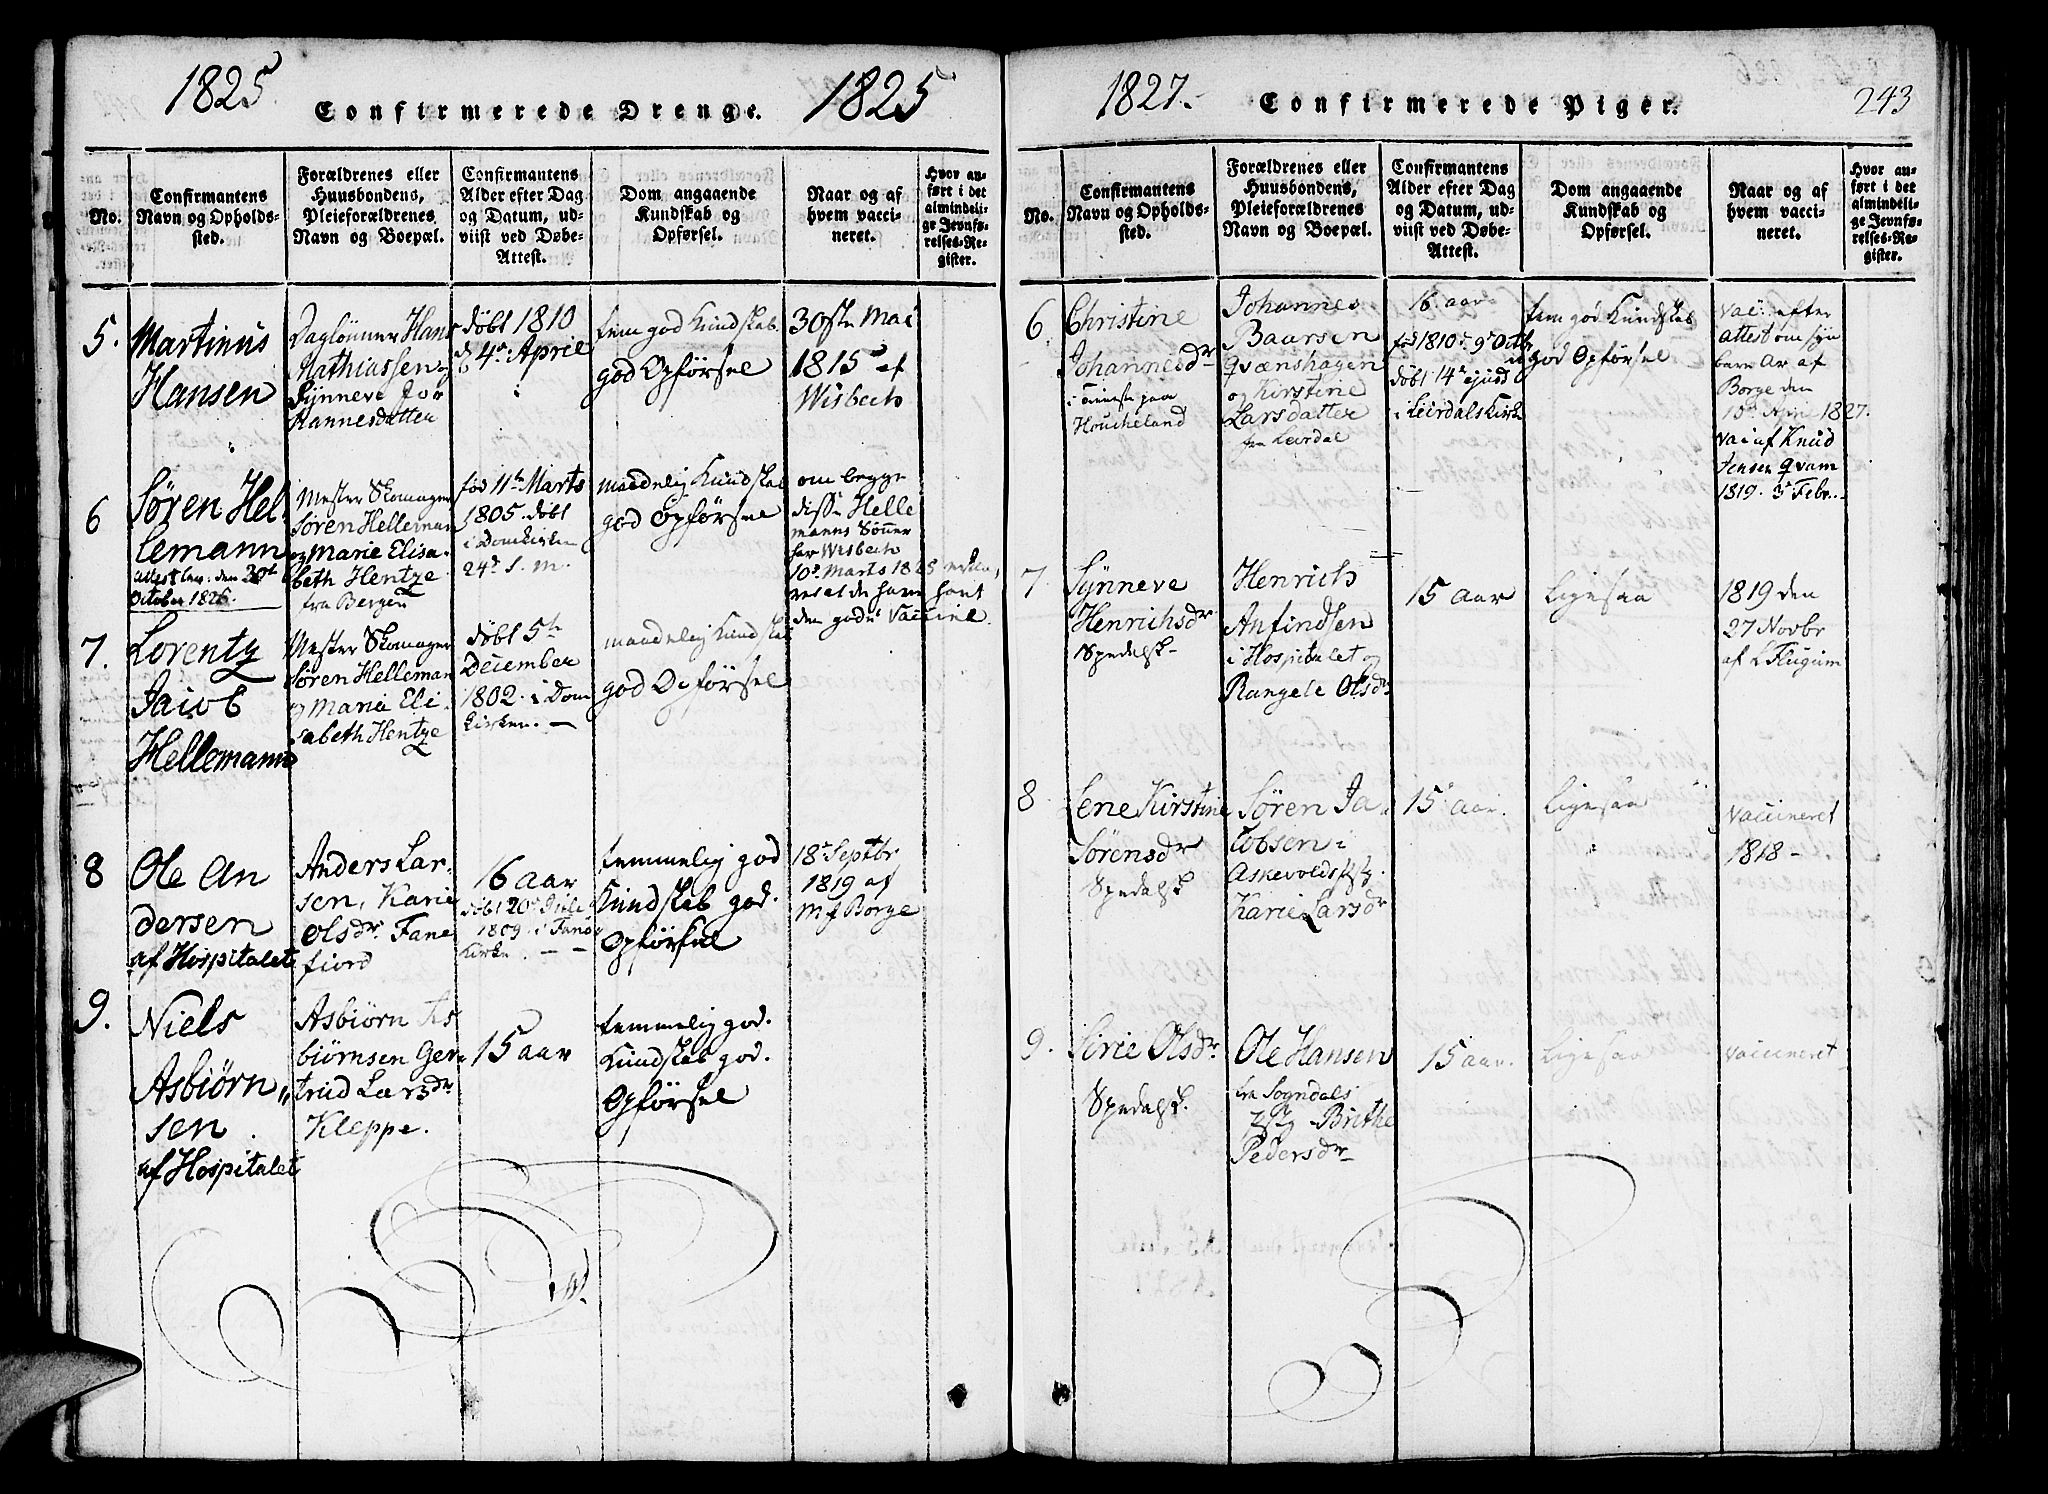 1825. Confirmerede Drenge. 1825
No.
Confirmantens
Navn og Opholds-
sted.
Forældrenes eller
Huusbondens,
Pleieforældrenes
Navn og Boepæl.
Confirmantens
Alder efter Dag
og Datum, ud-
viist ved Døbe-
Attest.
Dom angaaende
Kundskab og
Opførsel.
Naar og af
hvem vacci-
neret.
Hvor an-
ført i det
almindeli-
ge Jevnfø-
relses-Re-
gister.
5.
Martinus
Hansen
Daglønner Hans
Mathiassen og
Synneve Jo
hannesdatter
døbt 1810
d 4de April
tem god Kundskab
god Opførsel
30ste Mai
1815 af
Wisbech
6
Søren Hel-
lemann
attest lev. den 30th
October 1826.
Mester Skomager
Søren Helleman
og Marie Elisa-
beth Hentze
fra Bergen
fød 11te Marts
1805. døbt
i Domkirken
24de s. m.
maadelig Kundskab
god Opførsel
om begge
disse Helle
manns Sønner
har Wisbech
10de Marts 1825
den gode Vaccine.
7.
Lorentz
Jacob
Hellemann
Mester Skomager
Søren Helleman
og Marie Eli
sabeth Hentze
døbt 5te
December
1802. i Dom
kirken. —
maadelig Kundskab
god Opførsel
8
Ole An
dersen
af Hospitalet
Anders Lar-
sen, Karie
Olsdr. Fane
fiord
16 aar
døbt 20de Julii
1809. i Fanø
Kirke. — —
temmelig god
Kundskab god.
Opførsel
18de Septbr
1819 af
M f Borge
9.
Niels
Asbiørn„
sen.
af Hospitalet
Asbiørn As
biørnsen Ger
trud Larsdr
Kleppe.
15 aar
temmelig god.
Kundskab god.
Opførsel
1827. Confirmerede Piger. 243
No.
Confirmantens
Navn og Opholds-
sted.
Forældrenes eller
Huusbondens,
Pleieforældrenes
Navn og Boepæl.
Confirmantens
Alder efter Dag
og Datum, ud-
viist ved Døbe-
Attest.
Dom angaaende
Kundskab og
Opførsel.
Naar og af
hvem vacci-
neret.
Hvor an-
ført i det
almindeli-
ge Jevnfø-
relses-Re-
gister.
6.
Christine
Johannesdr
i tieneste paa
Houcheland
Johannes
Baarsen
Qvænshagen
og Kirstine
Larsdatter
fra Leirdal
16 aar
fød 1810 d. 9de Octbr
døbt 14de ejusd
i Leirdals Kirke
tem god Kundskab
god Opførsel
vac: efter
attest om syn
bare Ar af
Borge den
10de April 1827.
Vac af Knud
Jensen Qvam
1819. 3de Febr.
7
Synneve
Henrichsdr
Spedalsk-
Henrich
Anfindsen
i Hospitalet og
Rangele Olsdr
15 aar
Ligesaa
1819 den
27 Novbr
af L Flugum
8
Lene Kirstine
Sørensdr
Spedalsk
Søren Ja-
cobsen i
Askevolds Pstg.
Karie Larsdr
15 aar.
Ligesaa
Vaccineret
1818 -
9.
Sirie Olsdr
Spedalsk.
Ole Hansen
fra Sogndals
Pstg Brithe
Pedersdr
15 aar.
Ligesaa
vaccineret